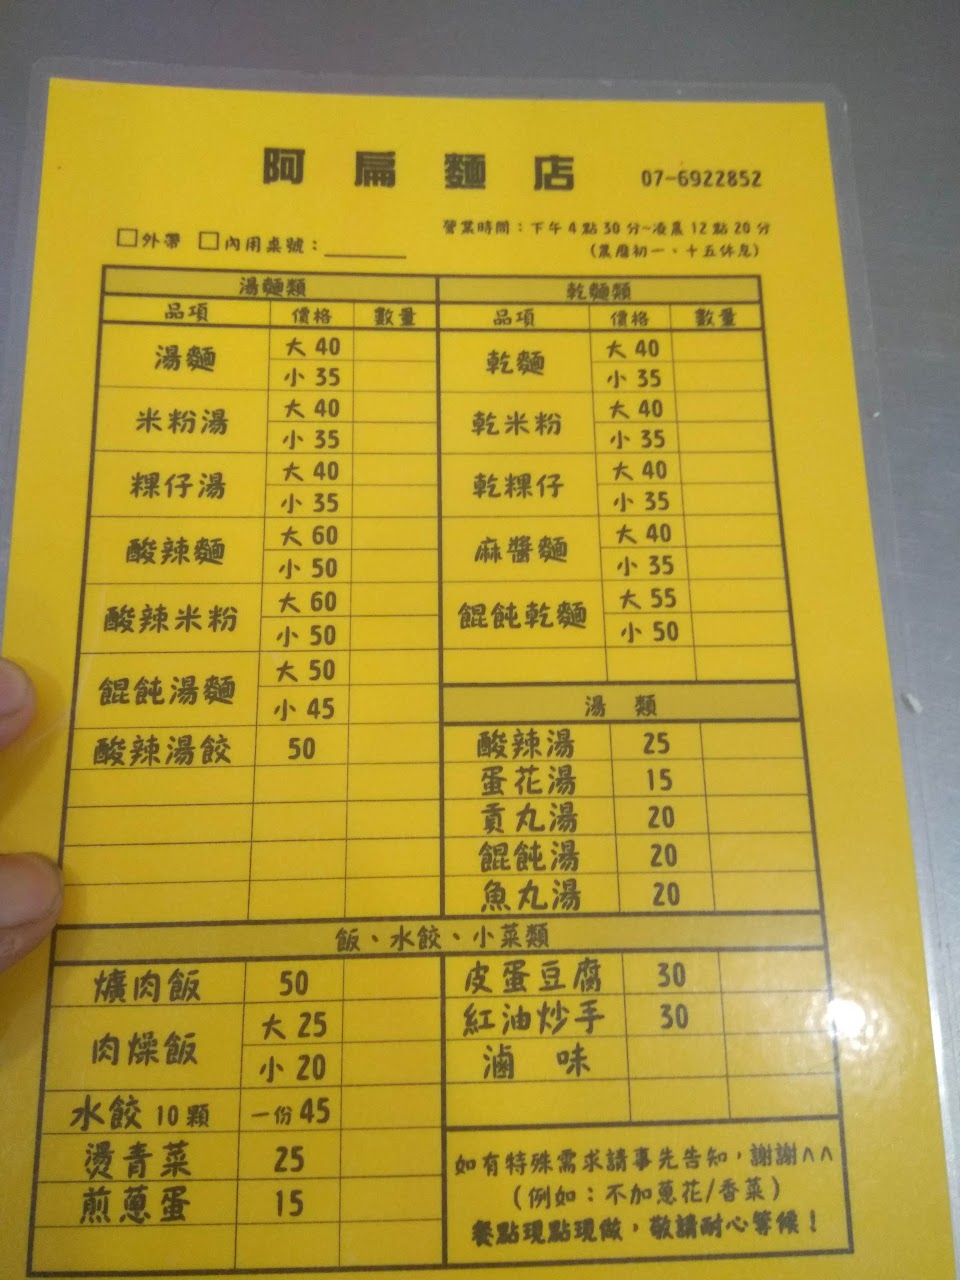 阿扁麵店 07-6922852
營業時間：下午4點30分~凌晨12點20分
□外帶 □內用桌號：______ (農曆初一、十五休息)
湯麵類
品項 價格 數量
湯麵 大 40
小 35
米粉湯 大 40
小 35
粿仔湯 大 40
小 35
酸辣麵 大 60
小 50
酸辣米粉 大 60
小 50
餛飩湯麵 大 50
小 45
酸辣湯餃 50
乾麵類
品項 價格 數量
乾麵 大 40
小 35
乾米粉 大 40
小 35
乾粿仔 大 40
小 35
麻醬麵 大 40
小 35
餛飩乾麵 大 55
小 50
湯 類
酸辣湯 25
蛋花湯 15
貢丸湯 20
餛飩湯 20
魚丸湯 20
飯、水餃、小菜類
爌肉飯 50
肉燥飯 大 25
小 20
水餃 10 顆 一份 45
燙青菜 25
煎蔥蛋 15
皮蛋豆腐 30
紅油炒手 30
滷 味
如有特殊需求請事先告知，謝謝^^
(例如：不加蔥花/香菜)
餐點現點現做，敬請耐心等候！